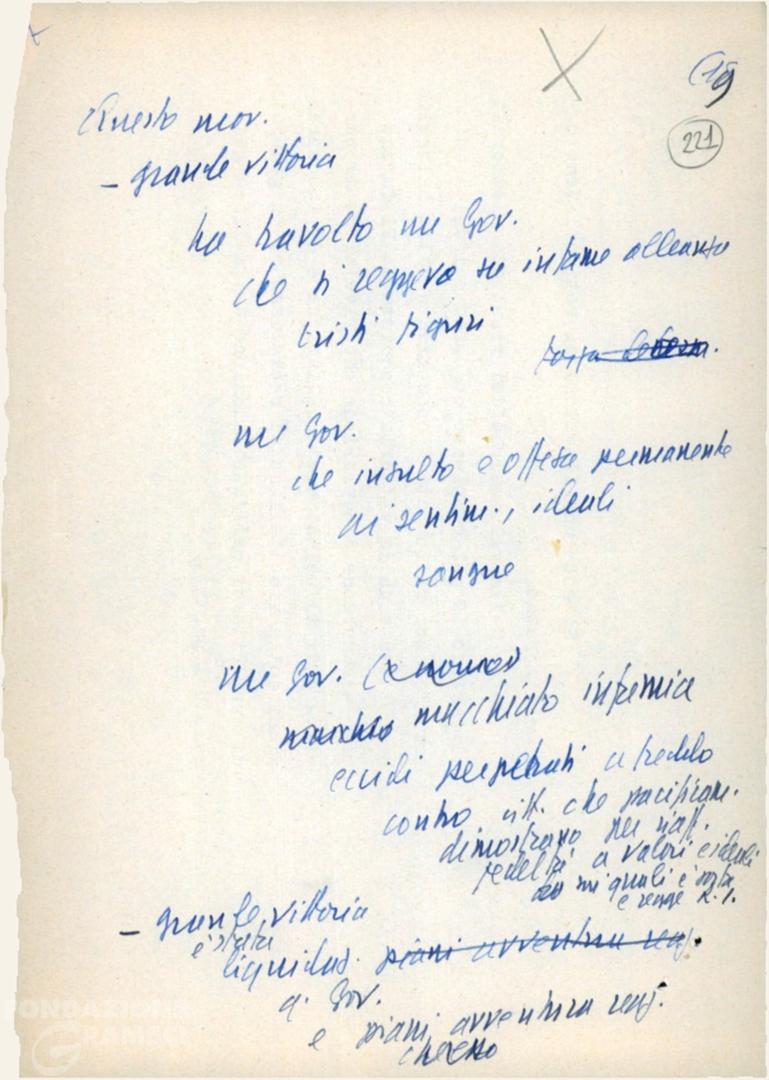 (19
221
Questo mov.
- grande vittoria
ha travolto un Gov.
che si reggeva su infame alleanza
tristi figuri
forza
un Gov.
che insulto e offesa permanente
ai sentim., ideali
sangue
un Gov. (
macchiato infamia
eccidi perpetrati a freddo
contro citt. che pacificam.
dimostrano per riaff.
fedeltà a valori e ideali
sui quali è sorta
e regge R. I.
- grande vittoria
è stata
liquidaz. piani avventura reaz.
q. Gov.
e piani avventura reaz.
che esso
FONDAZIONE
GRAMSCI